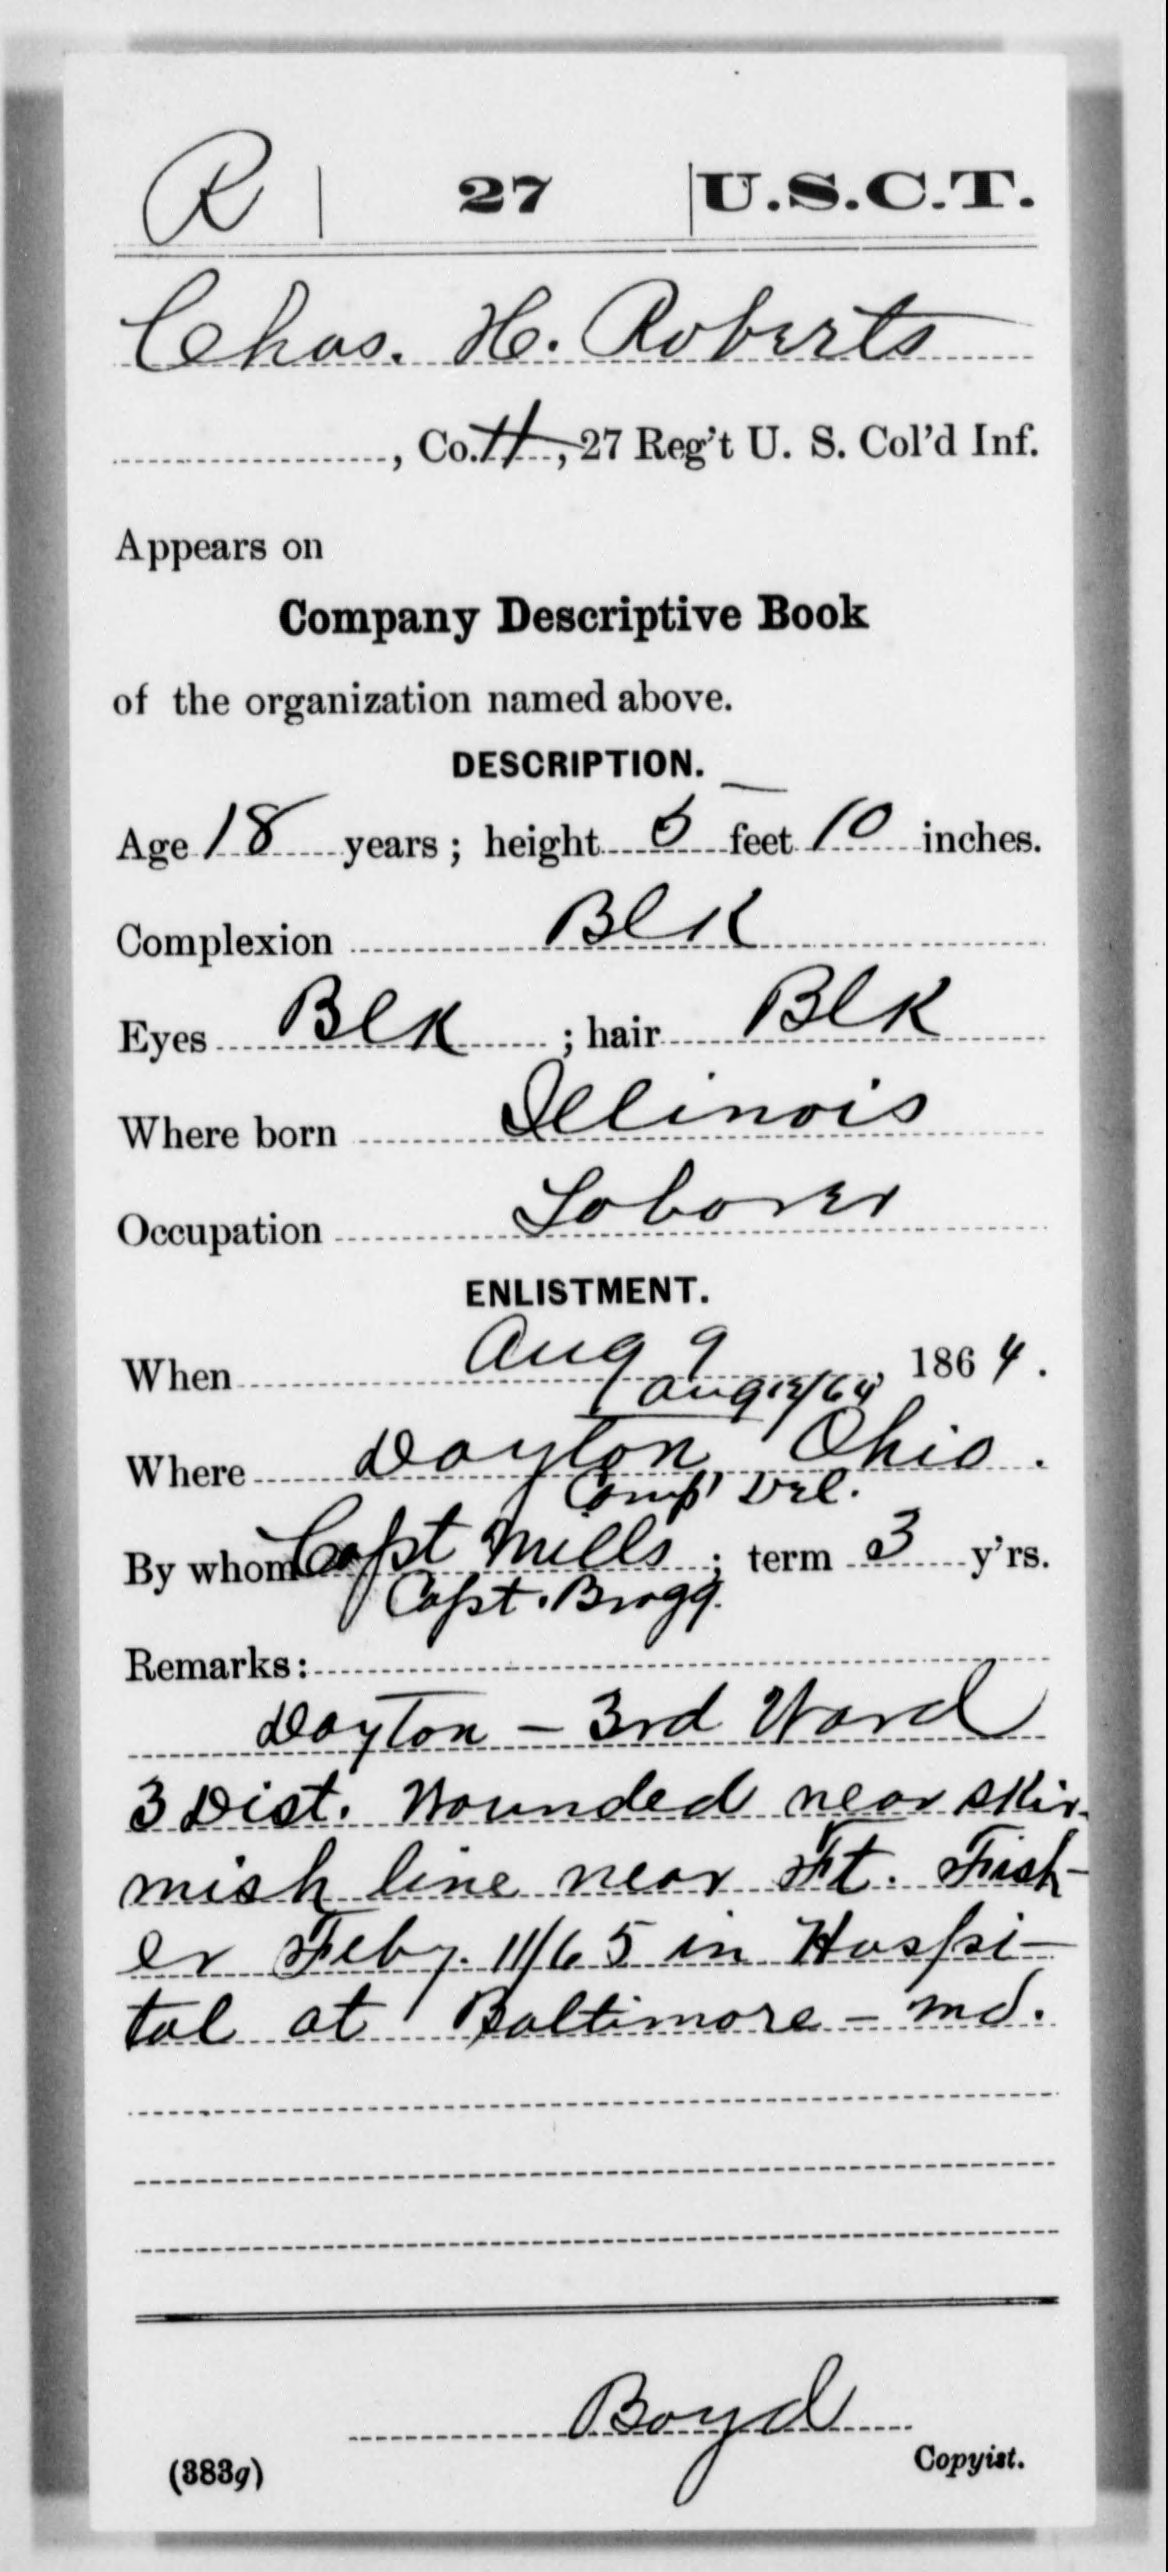 R | 27 | U.S.C.T.
Chas. H. Roberts
, Co. H, 27 Reg't U. S. Col'd Inf.
Appears on
Company Descriptive Book
of the organization named above.
DESCRIPTION.
Age 18 years; height 5 feet 10 inches.
Complexion Blk
Eyes Blk ; hair Blk
Where born Illinois
Occupation Laborer
ENLISTMENT.
When Aug 9, 1864.
Aug 12/64
Where Dayton, Ohio.
Camp Del.
By whom Capt Mills; term 3 y'rs.
Capt. Bragg.
Remarks:
Dayton - 3rd Ward
3 Dist. Wounded near skir-
mish line near Ft. Fish-
er Feby. 11/65 in Hospi-
tal at Baltimore - Md.
Boyd
(383g) Copyist.